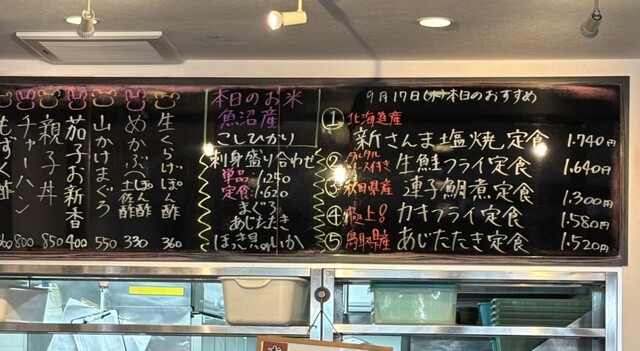 9月17日(水)本日のおすすめ
① 北海道産
新さんま塩焼定食 1.740円
② タルタルソース付き 生鮭フライ定食 1.640円
③ 秋田県産 連子鯛煮定食 1.300円
④ 極上! カキフライ定食 1.580円
⑤ 鳥取県産 あじたたき定食 1.520円
本日のお米
魚沼産
こしひかり
刺身盛り合わせ
単品:1.250
定食:1.620
まぐろ
あじたたき
ほっき貝
いか
生くらげぽん酢 360
めかぶ(ぽん酢 土佐酢) 330
山かけまぐろ 550
茄子お新香 400
親子丼 850
チャーハン 800
もずく酢